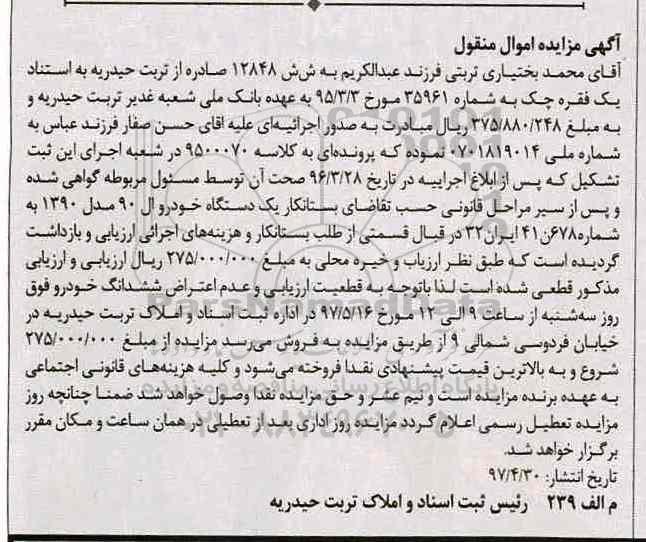 آگهی مزایده اموال منقول
آقای محمد بختیاری تربتی فرزند عبدالکریم به ش‌ش ۱۲۸۴۸ صادره از تربت حیدریه به استناد
یک فقره چک به شماره ۳۵۹۶۱ مورخ ۹۵/۳/۳ به عهده بانک ملی شعبه غدیر تربت حیدریه و
به مبلغ ۳۷۵/۸۸۰/۲۴۸ ریال مبادرت به صدور اجرائیه‌ای علیه اقای حسن صفار فرزند عباس به
شماره ملی ۰۷۰۱۸۱۹۰۱۴ نموده که پرونده‌ای به کلاسه ۹۵۰۰۰۷۰ در شعبه اجرای این ثبت
تشکیل که پس از ابلاغ اجراییه در تاریخ ۹۶/۳/۲۸ صحت آن توسط مسئول مربوطه گواهی شده
و پس از سیر مراحل قانونی حسب تقاضای بستانکار یک دستگاه خودرو ال ۹۰ مدل ۱۳۹۰ به
شماره۶۷۸ن۴۱ ایران۳۲ در قبال قسمتی از طلب بستانکار و هزینه‌های اجرائی ارزیابی و بازداشت
گردیده است که طبق نظر ارزیاب و خبره محلی به مبلغ ۲۷۵/۰۰۰/۰۰۰ ریال ارزیابی و ارزیابی
مذکور قطعی شده است لذا باتوجه به قطعیت ارزیابی و عدم اعتراض ششدانگ خودرو فوق
روز سه‌شنبه از ساعت ۹ الی ۱۲ مورخ ۹۷/۵/۱۶ در اداره ثبت اسناد و املاک تربت حیدریه در
خیابان فردوسی شمالی ۹ از طریق مزایده به فروش می‌رسد مزایده از مبلغ ۲۷۵/۰۰۰/۰۰۰
شروع و به بالاترین قیمت پیشنهادی نقدا فروخته می‌شود و کلیه هزینه‌های قانونی اجتماعی
به عهده برنده مزایده است و نیم عشر و حق مزایده نقدا وصول خواهد شد ضمنا چنانچه روز
مزایده تعطیل رسمی اعلام گردد مزایده روز اداری بعد از تعطیلی در همان ساعت و مکان مقرر
برگزار خواهد شد.
تاریخ انتشار: ۹۷/۴/۳۰
م الف ۲۳۹ رئیس ثبت اسناد و املاک تربت حیدریه
ParsNamadData
پایگاه اطلاع رسانی مناقصه و مزایده